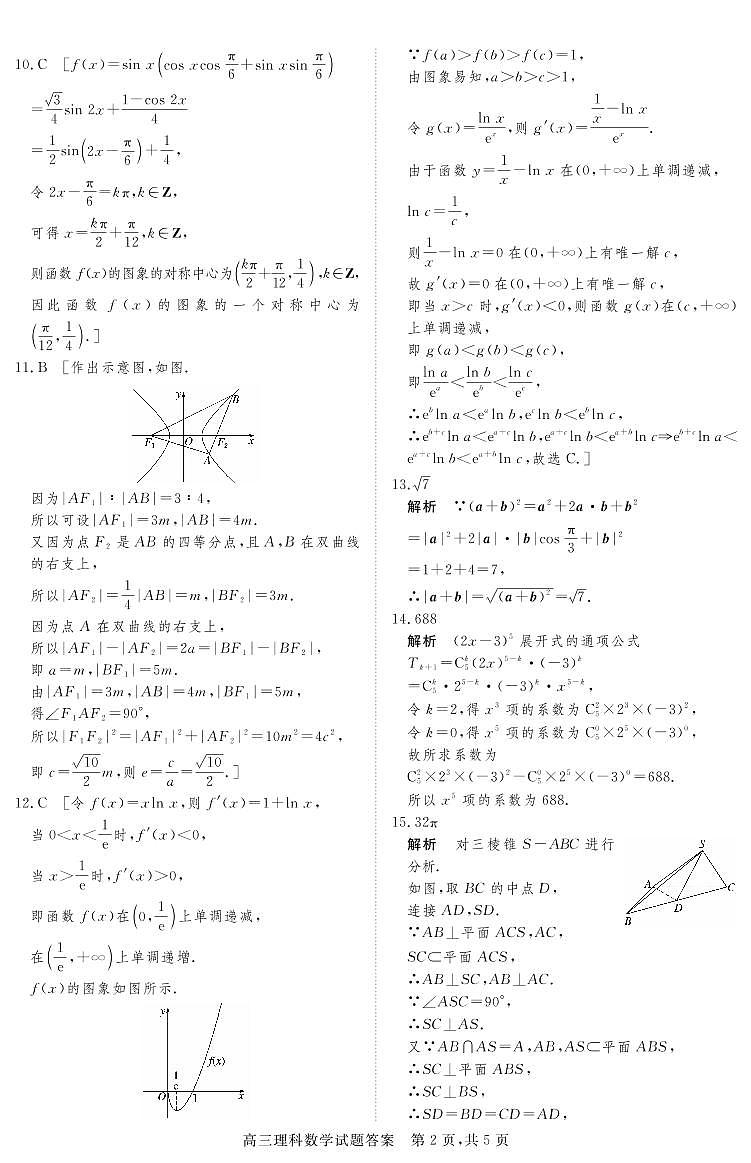 10. C [f(x)=sin x(cos xcos π/6+sin xsin π/6)
=√3/4 sin 2x+(1-cos 2x)/4
=1/2 sin(2x-π/6)+1/4,
令 2x-π/6=kπ,k∈Z,
可得 x=kπ/2+π/12,k∈Z,
则函数 f(x)的图象的对称中心为(kπ/2+π/12,1/4),k∈Z,
因此函数 f(x)的图象的一个对称中心为
(π/12,1/4).]
11. B [作出示意图,如图.
y
B
F₁
O
F₂
x
A
因为|AF₁|∶|AB|=3∶4,
所以可设|AF₁|=3m,|AB|=4m.
又因为点 F₂ 是 AB 的四等分点,且 A,B 在双曲线
的右支上,
所以|AF₂|=1/4|AB|=m,|BF₂|=3m.
因为点 A 在双曲线的右支上,
所以|AF₁|-|AF₂|=2a=|BF₁|-|BF₂|,
即 a=m,|BF₁|=5m.
由|AF₁|=3m,|AB|=4m,|BF₁|=5m,
得∠F₁AF₂=90°,
所以|F₁F₂|²=|AF₁|²+|AF₂|²=10m²=4c²,
即 c=√10/2 m,则 e=c/a=√10/2.]
12. C [令 f(x)=xln x,则 f′(x)=1+ln x,
当 0<x<1/e时,f′(x)<0,
当 x>1/e时,f′(x)>0,
即函数 f(x)在(0,1/e)上单调递减,
在(1/e,+∞)上单调递增.
f(x)的图象如图所示.
y
f(x)
1/e
O
1
x
∵f(a)>f(b)>f(c)=1,
由图象易知,a>b>c>1,
令 g(x)=ln x/eˣ,则 g′(x)=(1/x-ln x)/eˣ.
由于函数 y=1/x-ln x 在(0,+∞)上单调递减,
ln c=1/c,
则1/x-ln x=0 在(0,+∞)上有唯一解 c,
故 g′(x)=0 在(0,+∞)上有唯一解 c,
即当 x>c 时,g′(x)<0,则函数 g(x)在(c,+∞)
上单调递减,
即 g(a)<g(b)<g(c),
即ln a/eᵃ<ln b/eᵇ<ln c/eᶜ,
∴eᵇln a<eᵃln b,eᶜln b<eᵇln c,
∴eᵇ⁺ᶜln a<eᵃ⁺ᶜln b,eᵃ⁺ᶜln b<eᵃ⁺ᵇln c⇒eᵇ⁺ᶜln a<
eᵃ⁺ᶜln b<eᵃ⁺ᵇln c,故选 C.]
13. √7
解析 ∵(a+b)²=a²+2a·b+b²
=|a|²+2|a|·|b|cos π/3+|b|²
=1+2+4=7,
∴|a+b|=√(a+b)²=√7.
14. 688
解析 (2x-3)⁵ 展开式的通项公式
Tₖ₊₁=C₅ᵏ(2x)⁵⁻ᵏ·(-3)ᵏ
=C₅ᵏ·2⁵⁻ᵏ·(-3)ᵏ·x⁵⁻ᵏ,
令 k=2,得 x³ 项的系数为 C₅²×2³×(-3)²,
令 k=0,得 x⁵ 项的系数为 C₅⁰×2⁵×(-3)⁰,
故所求系数为
C₅²×2³×(-3)²-C₅⁰×2⁵×(-3)⁰=688.
所以 x⁵ 项的系数为 688.
15. 32π
解析 对三棱锥 S-ABC 进行
分析.
如图,取 BC 的中点 D,
连接 AD,SD.
∵AB⊥平面 ACS,AC,
SC⊂平面 ACS,
∴AB⊥SC,AB⊥AC.
∵∠ASC=90°,
∴SC⊥AS.
又∵AB⋂AS=A,AB,AS⊂平面 ABS,
∴SC⊥平面 ABS,
∴SC⊥BS,
∴SD=BD=CD=AD,
S
A
C
D
B
高三理科数学试题答案 第 2 页,共 5 页